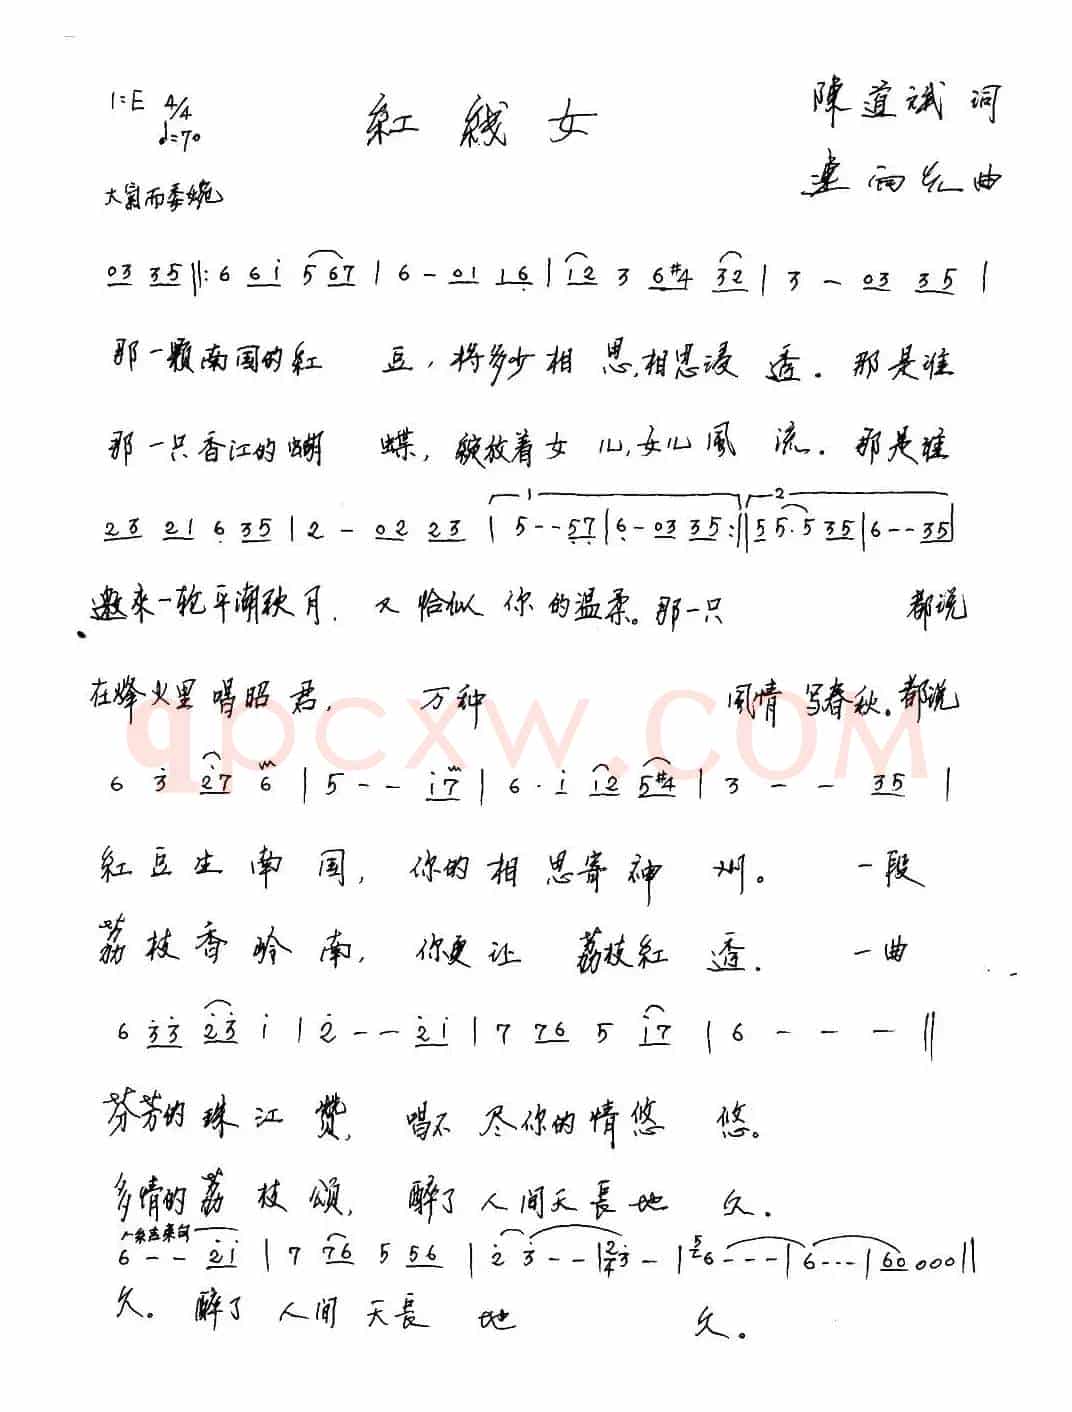 1=E 4/4
♩=70
紅綫女
陳道斌 词
曲
大氣而委婉
03 35 ‖: 6 6i 5 67 | 6 - 01 16 | i2 3 6#4 32 | 3 - 03 35 |
那一顆南国的紅 豆，将多少相 思,相思浸 透. 那是谁
那一只香江的蝴 蝶，綻放着女 儿,女儿風 流. 那是谁
23 21 6 35 | 2 - 02 23 | 5 - - 57 | 6 - 03 35 :‖ 55·5 35 | 6 - - 35 |
邀來一轮平湖秋月. 又恰似你的温柔。那一只 都说
在烽火里唱昭君, 万种 風情写春秋。都说
6 3 27 6 | 5 - - i7 | 6 · i i2 5#4 | 3 - - 35 |
紅豆生南国, 你的相思寄神州。 一段
荔枝香岭南, 你更让荔枝紅透. 一曲
6 33 23 i | 2 - - 2i | 7 76 5 i7 | 6 - - - ‖
芬芳的珠江赞, 唱不尽你的情悠悠。
多情的荔枝頌, 醉了人间天長地久.
6 - - 2i | 7 76 5 56 | 2 3 - - | 2/4 3 - | 6 - - - | 6 - - - | 60 000 ‖
久。醉了人间天長地 久.
qpcxw.COM